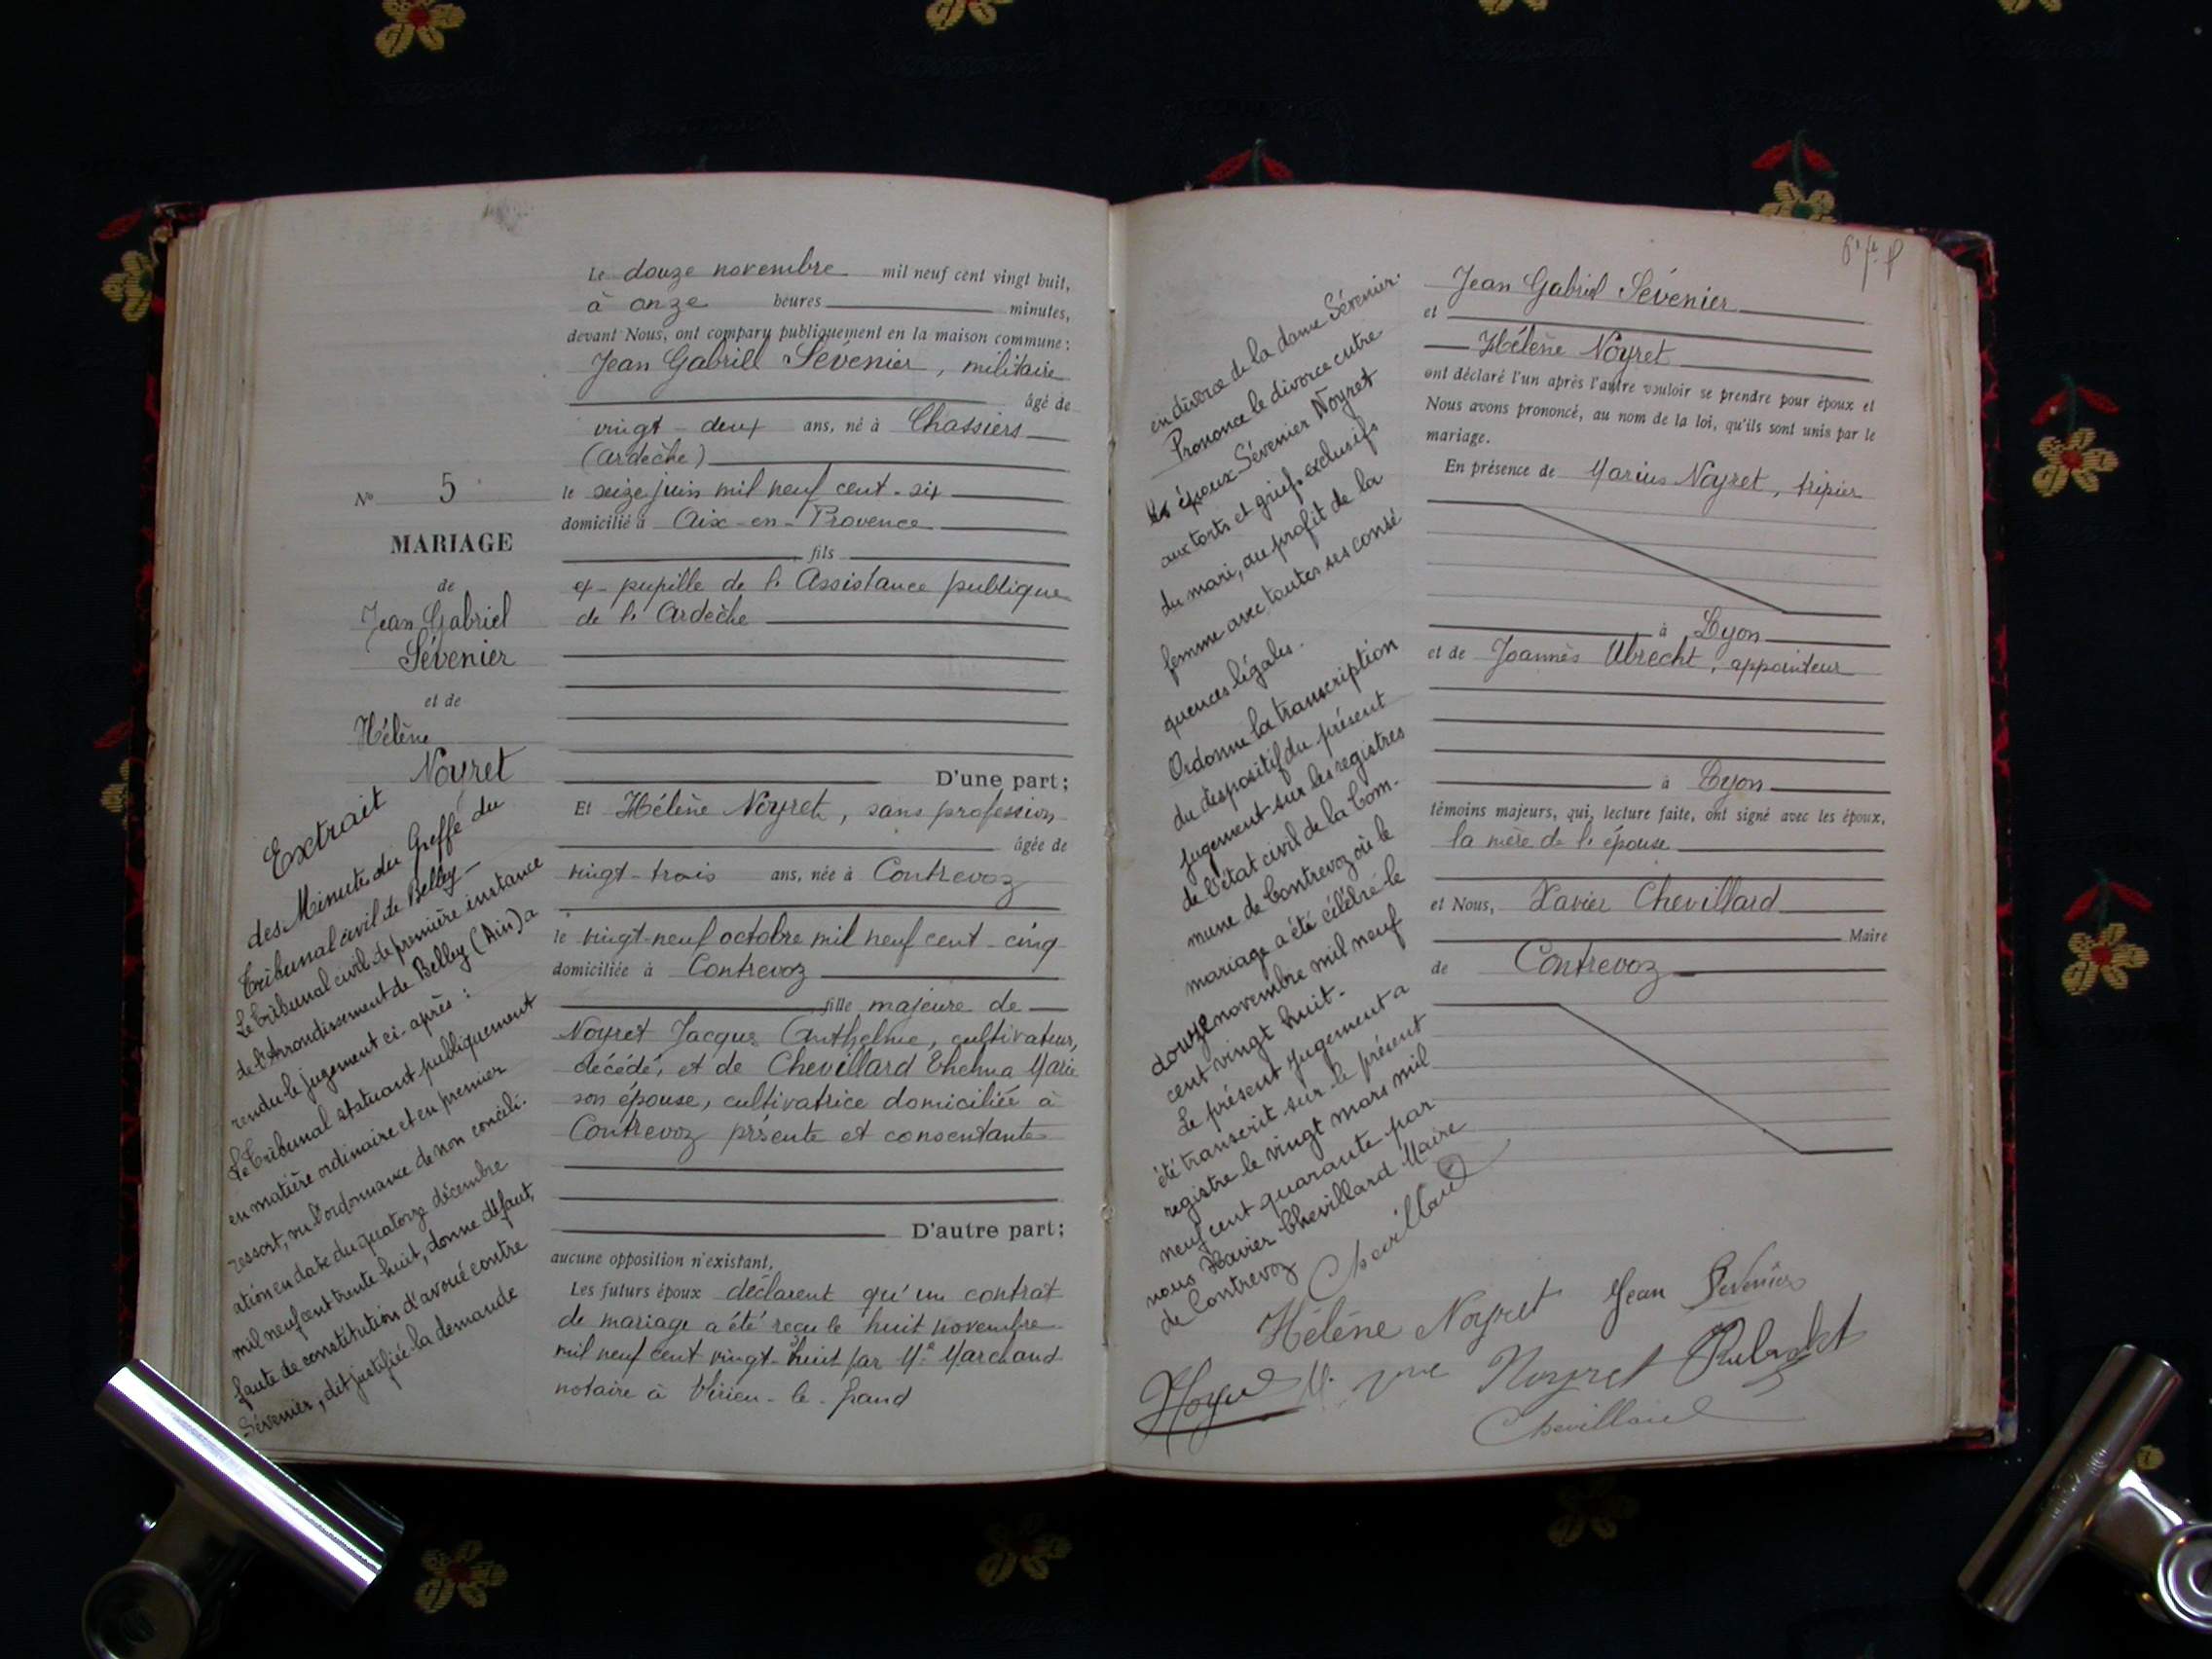 Le douze novembre mil neuf cent vingt huit,
à onze heures minutes,
devant Nous, ont comparu publiquement en la maison commune :
Jean Gabriel Sévenier, militaire
âgé de
vingt-deux ans, né à Chassiers
(Ardèche)
le seize juin mil neuf cent-six
domicilié à Aix-en-Provence
fils
ex-pupille de l'Assistance publique
de l'Ardèche
D'une part;
Et Hélène Noyret, sans profession
âgée de
vingt-trois ans, née à Contrevoz
le vingt-neuf octobre mil neuf cent-cinq
domiciliée à Contrevoz
fille majeure de
Noyret Jacques Anthelme, cultivateur,
décédé, et de Chevillard Marie
son épouse, cultivatrice domiciliée à
Contrevoz présente et consentante
D'autre part;
aucune opposition n'existant,
Les futurs époux déclarent qu'un contrat
de mariage a été reçu le huit novembre
mil neuf cent vingt-huit par Me Marchand
notaire à Virieu-le-Grand
No 5
MARIAGE
de
Jean Gabriel
Sévenier
et de
Hélène
Noyret
Extrait
des Minutes du Greffe du
Tribunal civil de Belley
Le Tribunal civil de première instance
de l'Arrondissement de Belley (Ain) a
rendu le jugement ci-après :
Le Tribunal statuant publiquement
en matière ordinaire et en premier
ressort, vu l'ordonnance de non concili-
ation en date du quatorze décembre
mil neuf cent trente-huit, donne défaut,
faute de constitution d'avoué contre
Sévenier, dit justifiée la demande
en divorce de la dame Sévenier.
Prononce le divorce entre
les époux Sévenier Noyret
aux torts et griefs exclusifs
du mari, au profit de la
femme avec toutes ses consé
quences légales.
Ordonne la transcription
du dispositif du présent
jugement sur les registres
de l'état civil de la Com-
mune de Contrevoz où le
mariage a été célébré le
douze novembre mil neuf
cent vingt huit.
Le présent jugement a
été transcrit sur le présent
registre le vingt mars mil
neuf cent quarante par
nous Xavier Chevillard Maire
de Contrevoz
Chevillard
Jean Gabriel Sévenier
et
Hélène Noyret
ont déclaré l'un après l'autre vouloir se prendre pour époux et
Nous avons prononcé, au nom de la loi, qu'ils sont unis par le
mariage.
En présence de Marius Noyret, tripier
à Lyon
et de Joannès Ulrecht, appointeur
à Lyon
témoins majeurs, qui, lecture faite, ont signé avec les époux,
la mère de l'épouse
et Nous, Xavier Chevillard
Maire
de Contrevoz
Hélène Noyret Jean Sévenier
Noyret
Chevillard